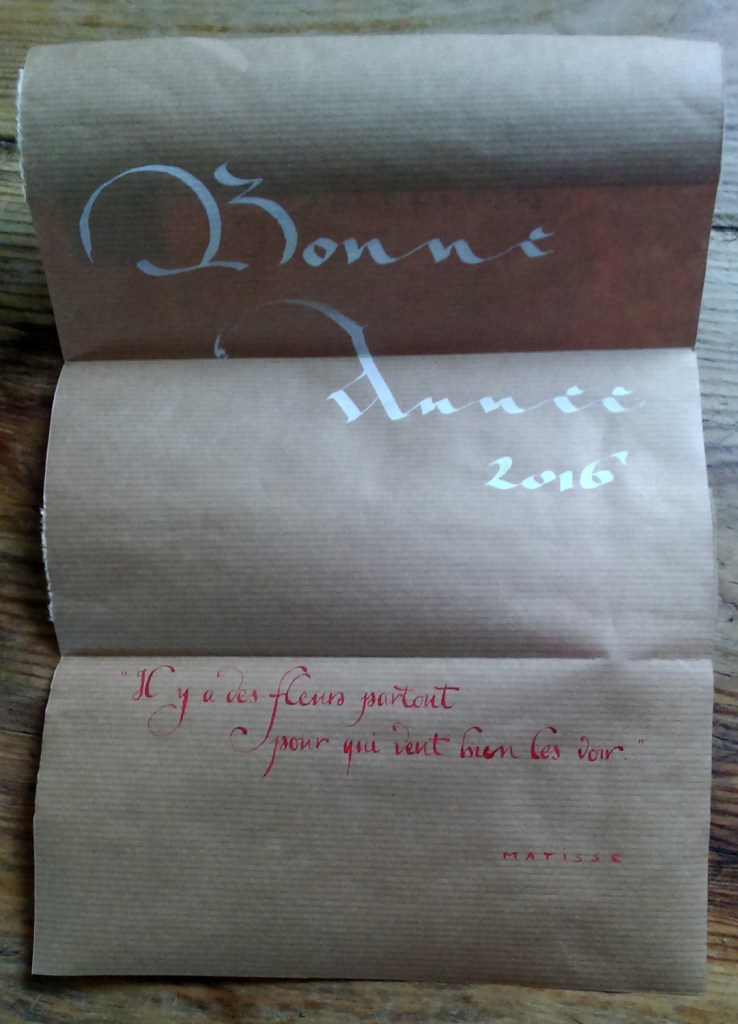 Bonne
Année
2016
"Il y a des fleurs partout
pour qui veut bien les voir."
MATiSSE